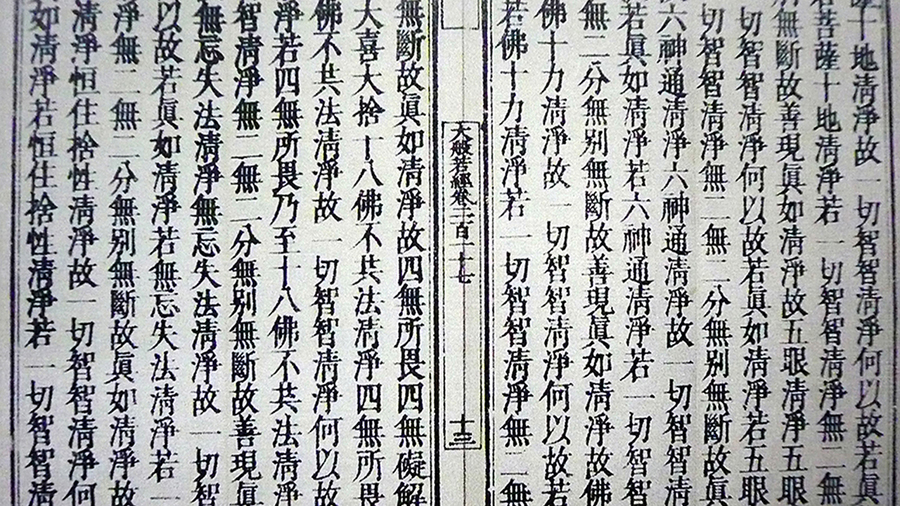 薩十地清淨故一切智智清淨何以故若眞
若菩薩十地清淨若一切智智清淨無二無
別無斷故善現眞如清淨故五眼清淨五眼
切智智清淨何以故若眞如清淨若五眼
切智智清淨無二無二分無別無斷故眞
六神通清淨六神通清淨故一切智智清
若眞如清淨若六神通清淨若一切智智
無二分無別無斷故善現眞如清淨故佛
佛十力清淨故一切智智清淨何以故若
若佛十力清淨若一切智智清淨無二無
大般若經卷二百一十七
十三
無斷故眞如清淨故四無所畏四無礙解
大喜大捨十八佛不共法清淨四無所畏
佛不共法清淨故一切智智清淨何以故
淨若四無所畏乃至十八佛不共法清淨
智清淨無二無二分無別無斷故善現眞
無忘失法清淨無忘失法清淨故一切智
以故若眞如清淨若無忘失法清淨若一
淨無二無二分無別無斷故眞如清淨故
清淨恒住捨性清淨故一切智智清淨何
如清淨若恒住捨性清淨若一切智智清